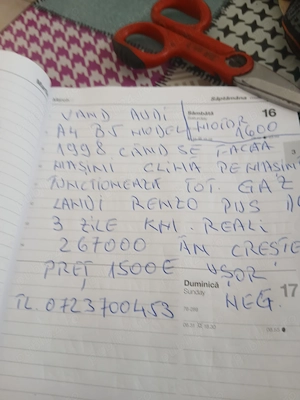 Sâmbătă 16
VÂND AUDI MOTOR
A4 B5 MODEL 1600
1998 CÂND SE FĂCEA
MAȘINI CLIMA PE MAȘINĂ
FUNCTIONEAZĂ TOT. GAZ
LANDI RENZO PUS
3 ZILE KM. REALI
267000 AN CREȘTE
PREȚ 1500€ UȘOR
NEG.
TL. 0723700453
Duminică 17
Sunday